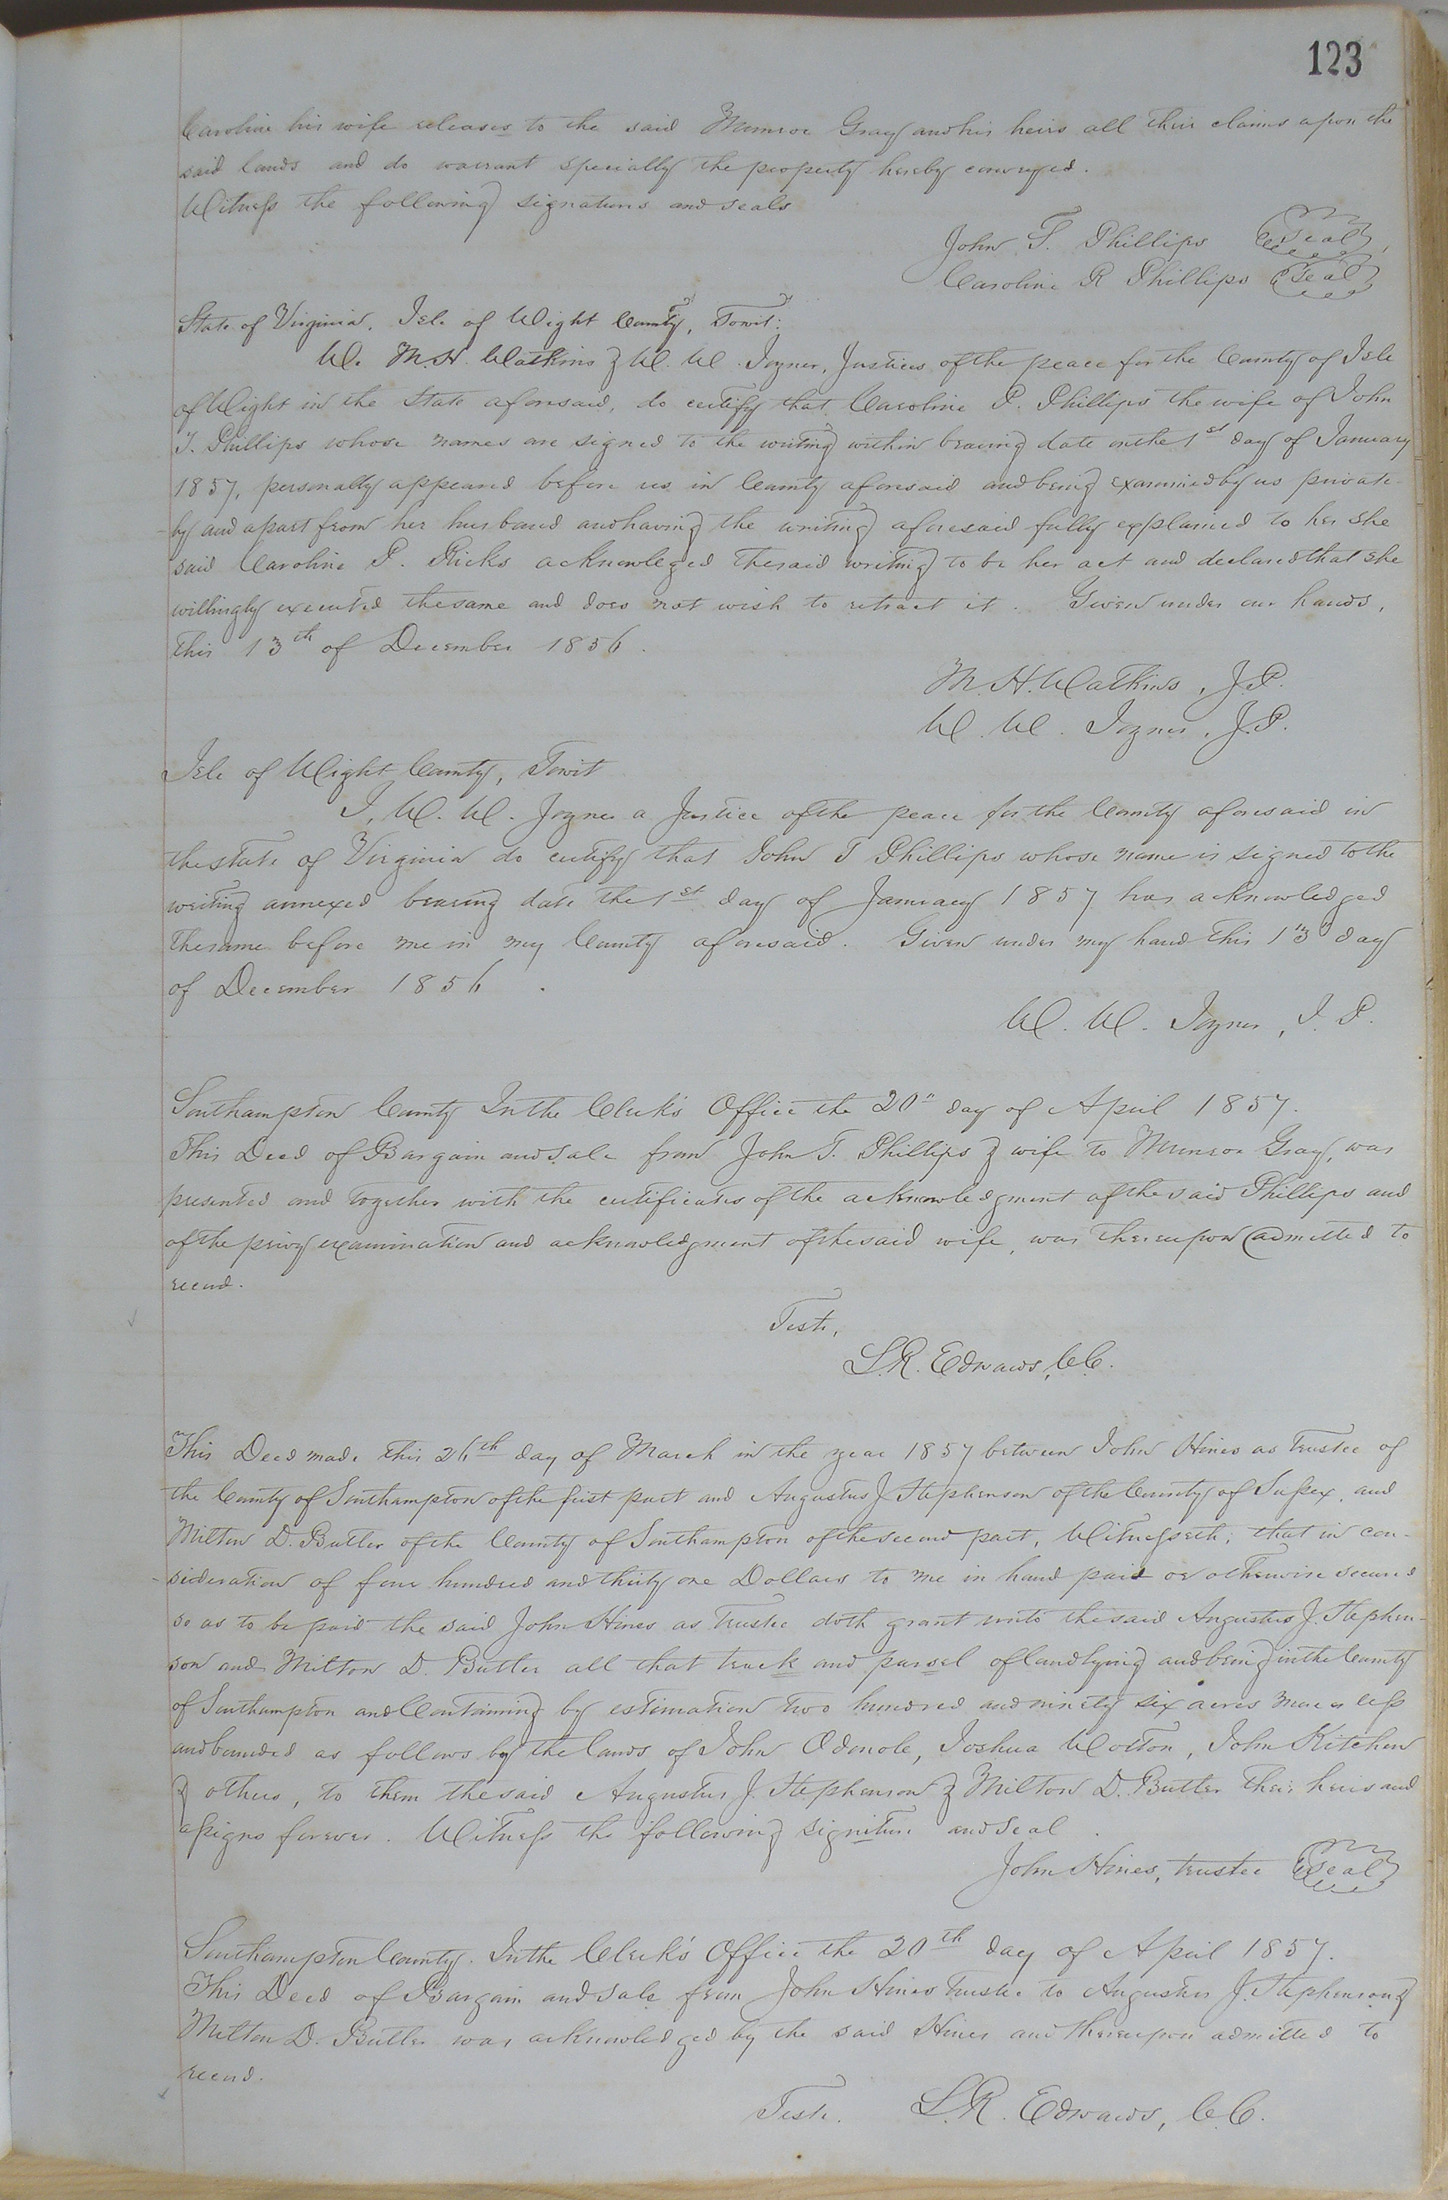 123
Caroline his wife releases to the said Munroe Gray and his heirs all their claims upon the
said lands and do warrant specially the property hereby conveyed.
Witness the following signatures and seals
John T. Phillips Seal
Caroline R Phillips Seal
State of Virginia, Isle of Wight County, Towit:
We M. H. Watkins & W. W. Joyner, Justices of the peace for the County of Isle
of Wight in the State aforesaid, do certify that Caroline P. Phillips the wife of John
T. Phillips whose names are signed to the writing within bearing date on the 1st day of January
1857, personally appeared before us in County aforesaid and being examined by us private-
ly and apart from her husband and having the writing aforesaid fully explained to her she
said Caroline P. Ricks acknowleged the said writing to be her act and declared that she
willingly executed the same and does not wish to retract it. Given under our hands,
this 13th of December 1856.
M. H. Watkins, J.P.
W. W. Joyner, J.P.
Isle of Wight County, Towit
I, W. W. Joyner a Justice of the peace for the County aforesaid in
the state of Virginia do certify that John T Phillips whose name is signed to the
writing annexed bearing date the 1st day of January 1857 has acknowledged
the same before me in my County aforesaid. Given under my hand this 13" day
of December 1856.
W. W. Joyner, J. P.
Southampton County In the Clerk's Office the 20" day of April 1857.
This Deed of Bargain and Sale from John T. Phillips & wife to Munroe Gray, was
presented and together with the certificates of the acknowledgment of the said Phillips and
of the privy examination and acknowledgment of the said wife, was thereupon admitted to
record.
Teste,
L. R. Edwards, C.C.
This Deed made this 26th day of March in the year 1857 between John Hines as trustee of
the County of Southampton of the first part and Augustus J. Stephenson of the County of Sussex, and
Milton D. Butler of the County of Southampton of the second part, Witnesseth; that in con-
sideration of four hundred and thirty one Dollars to me in hand paid or otherwise secured
so as to be paid the said John Hines as trustee doth grant unto the said Augustus J. Stephen-
son and Milton D. Butler all that track and parsel of land lying and being in the County
of Southampton and Containing by estimation two hundred and ninety six acres more or less
and bounded as follows by the lands of John Odenole, Joshua Wotton, John Kitchen
& others, to them the said Augustus J. Stephenson & Milton D. Butler their heirs and
assigns forever. Witness the following signiture and seal.
John Hines, trustee Seal
Southampton County. In the Clerk's Office the 20th day of April 1857.
This Deed of Bargain and Sale from John Hines Trustee to Augustus J. Stephenson &
Milton D. Butler was acknowledged by the said Hines and thereupon admitted to
record.
Teste. L. R. Edwards, C. C.